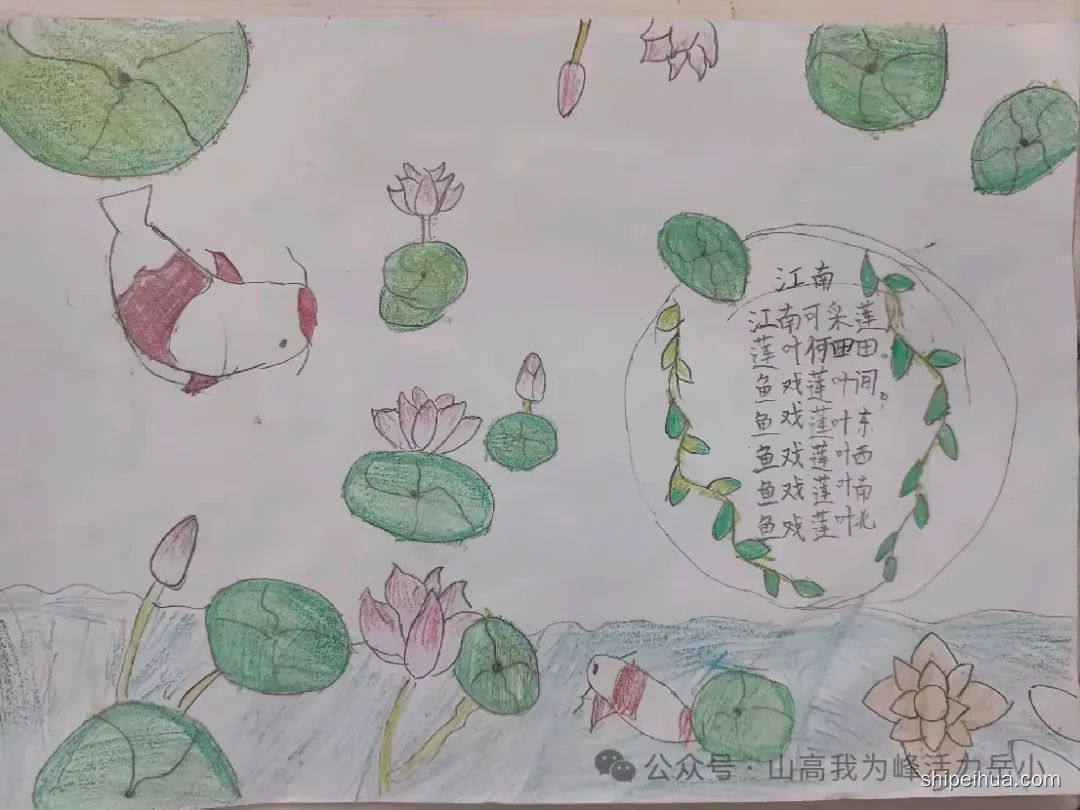 江南
江南可采莲。
莲叶何田田。
鱼戏莲叶间。
鱼戏莲叶东
鱼戏莲叶西
鱼戏莲叶南
鱼戏莲叶北
公众号·山高我为峰活力岳小
shipeihua.com